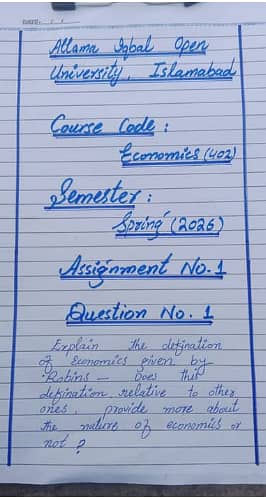 DATE: / /
Allama Iqbal Open
University, Islamabad
Course Code :
Economics (402)
Semester :
Spring (2026)
Assignment No. 1
Question No. 1
Explain the defination
of Economics given by
Robins — Does this
defination relative to other
ones, provide more about
the nature of economics or
not ?